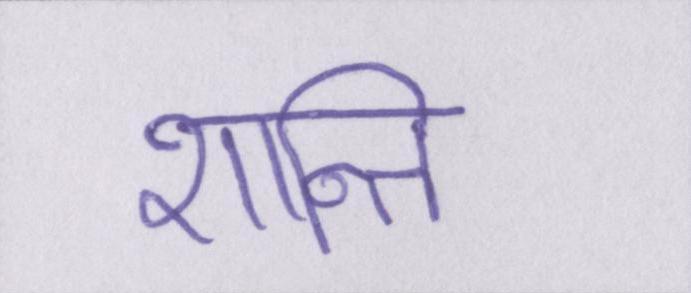 शान्ति